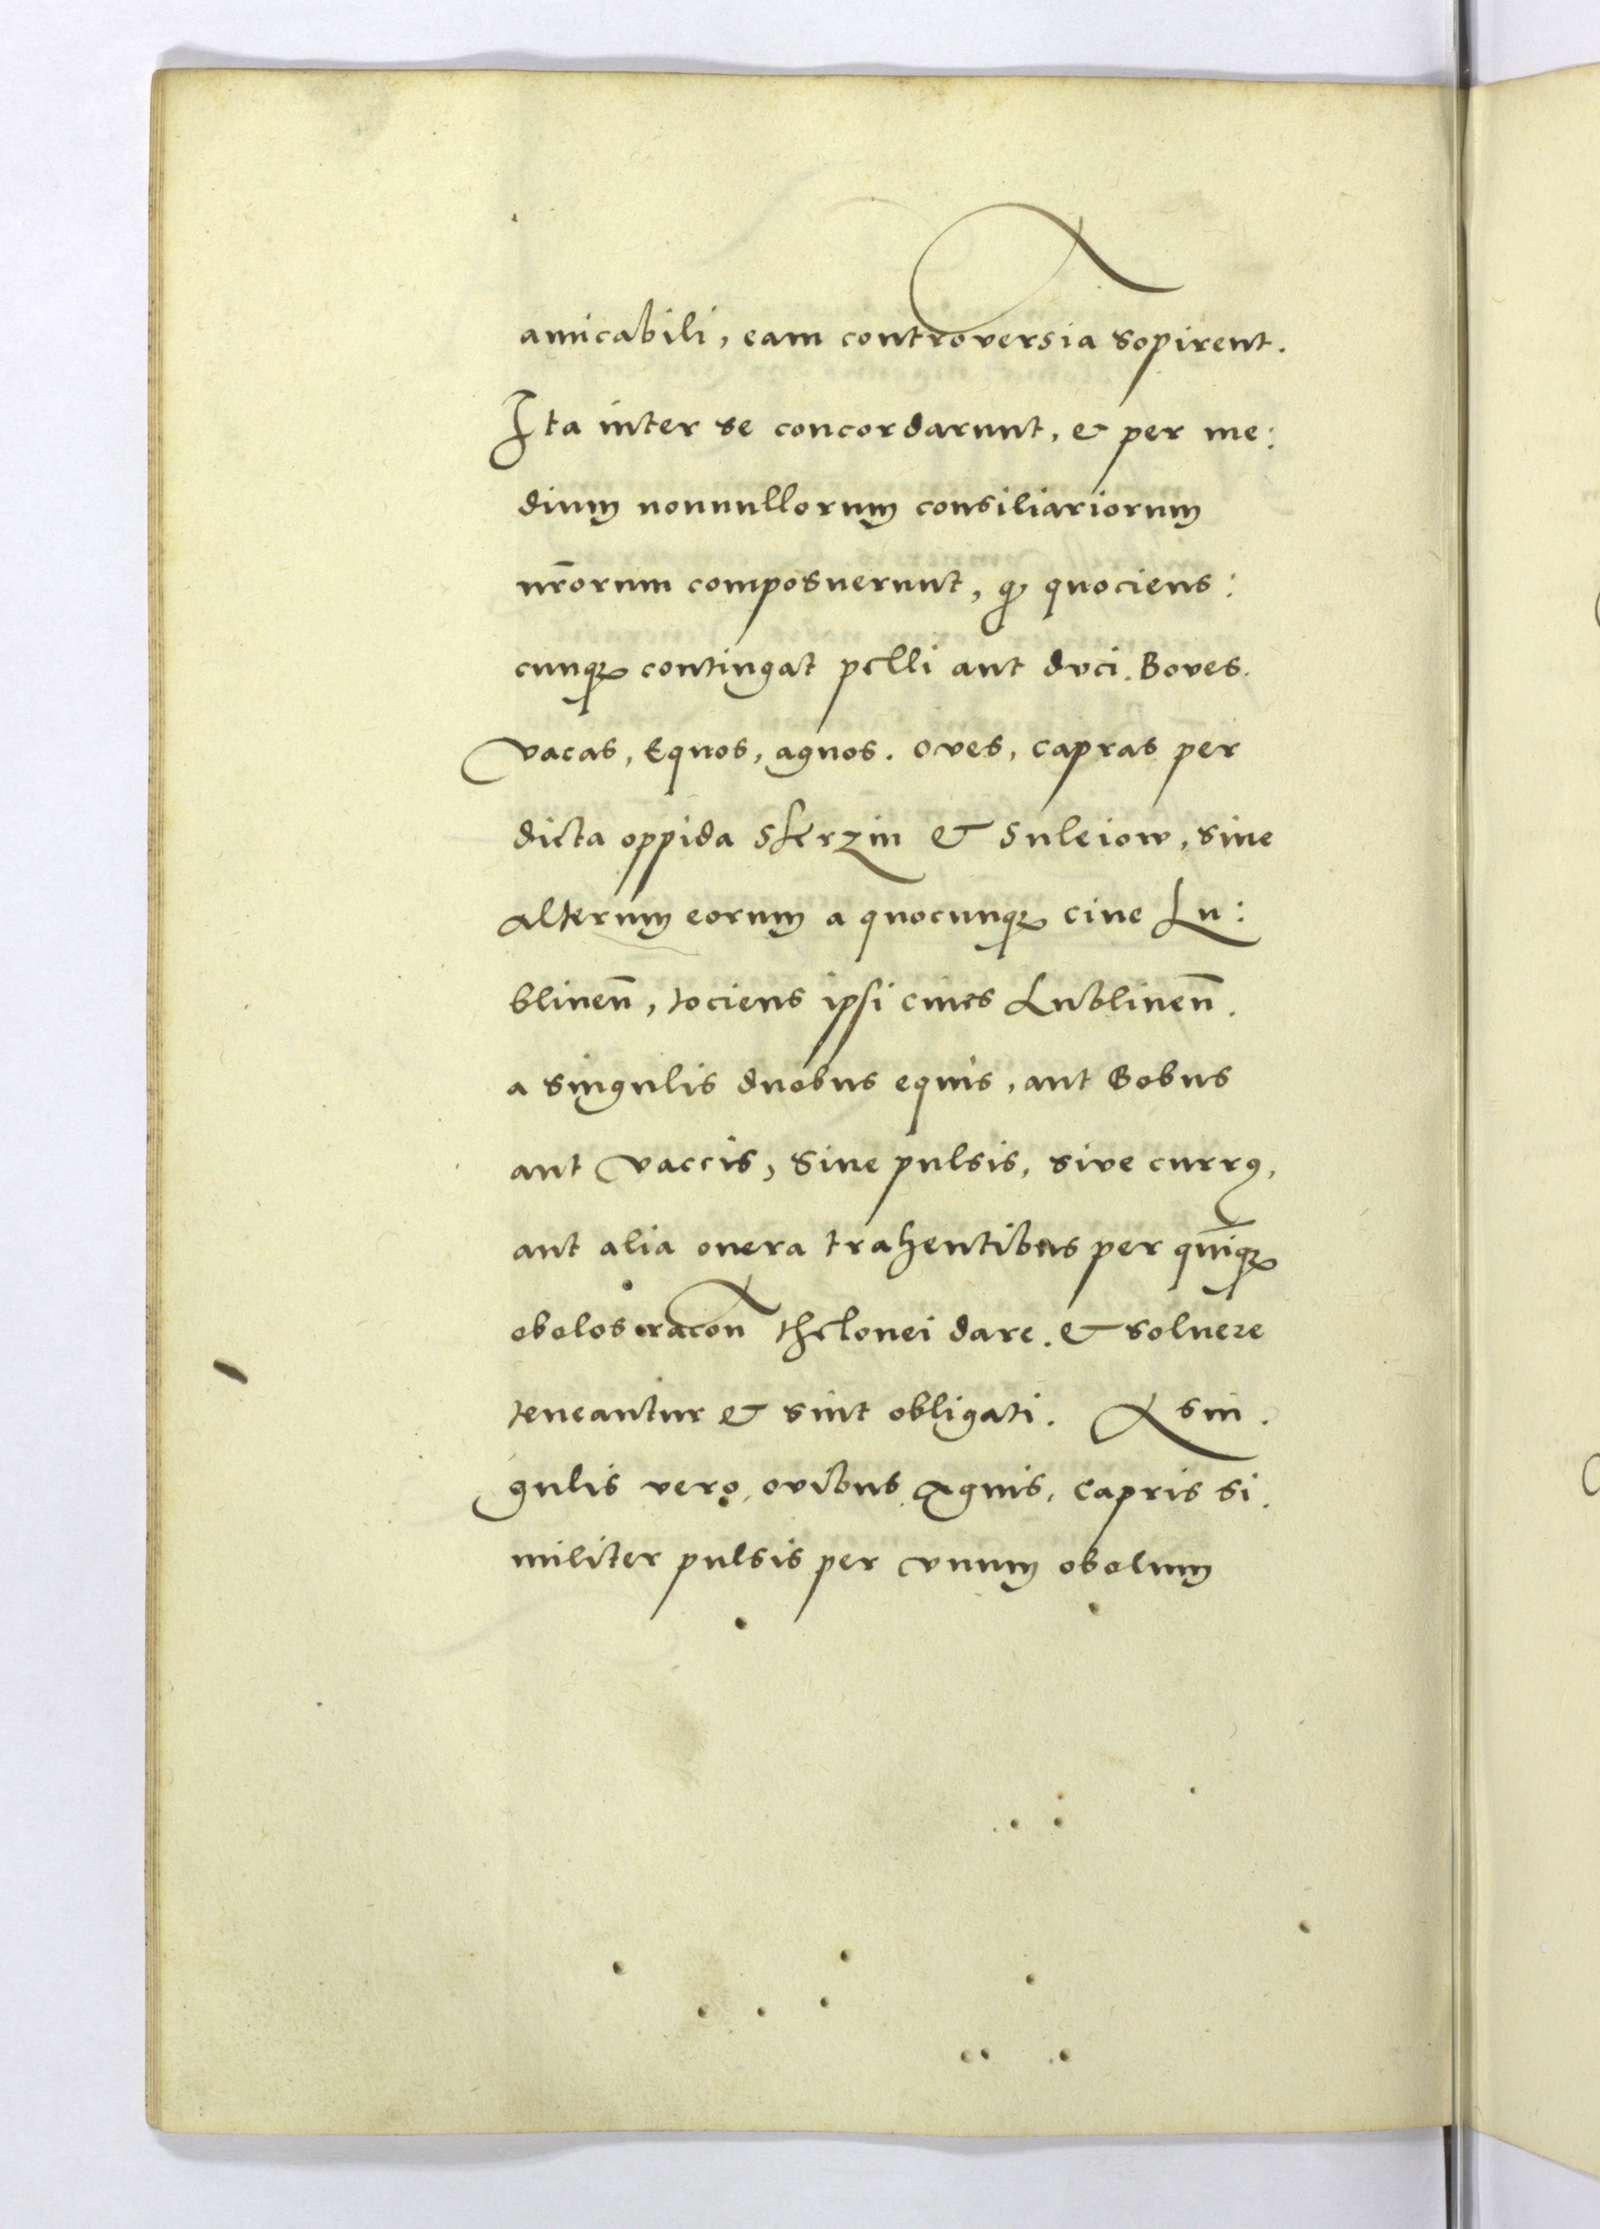 amicabili, eam controversia sopirent.
Ita inter se concordarunt, & per me:
dium nonnullorum consiliariorum
nr̄orum composuerunt, qꝫ quociens:
cunqꝫ contingat pelli aut duci. Boves.
vacas, Equos, agnos. oves, capras per
dicta oppida Skrzin & Suleiow, sive
alterum eorum a quocunqꝫ cive Lu:
blineñ, tociens ipsi cives Lublineñ.
a singulis duobus equis, aut Bobus
aut vaccis, sive pulsis, sive currꝯ,
aut alia onera trahentibus per quīqꝫ
obolos racoñ thelonei dare. & soluere
teneantur & sint obligati. A sin.
gulis vero, ovibus, agnis, capris si.
militer pulsis per vnum obolum